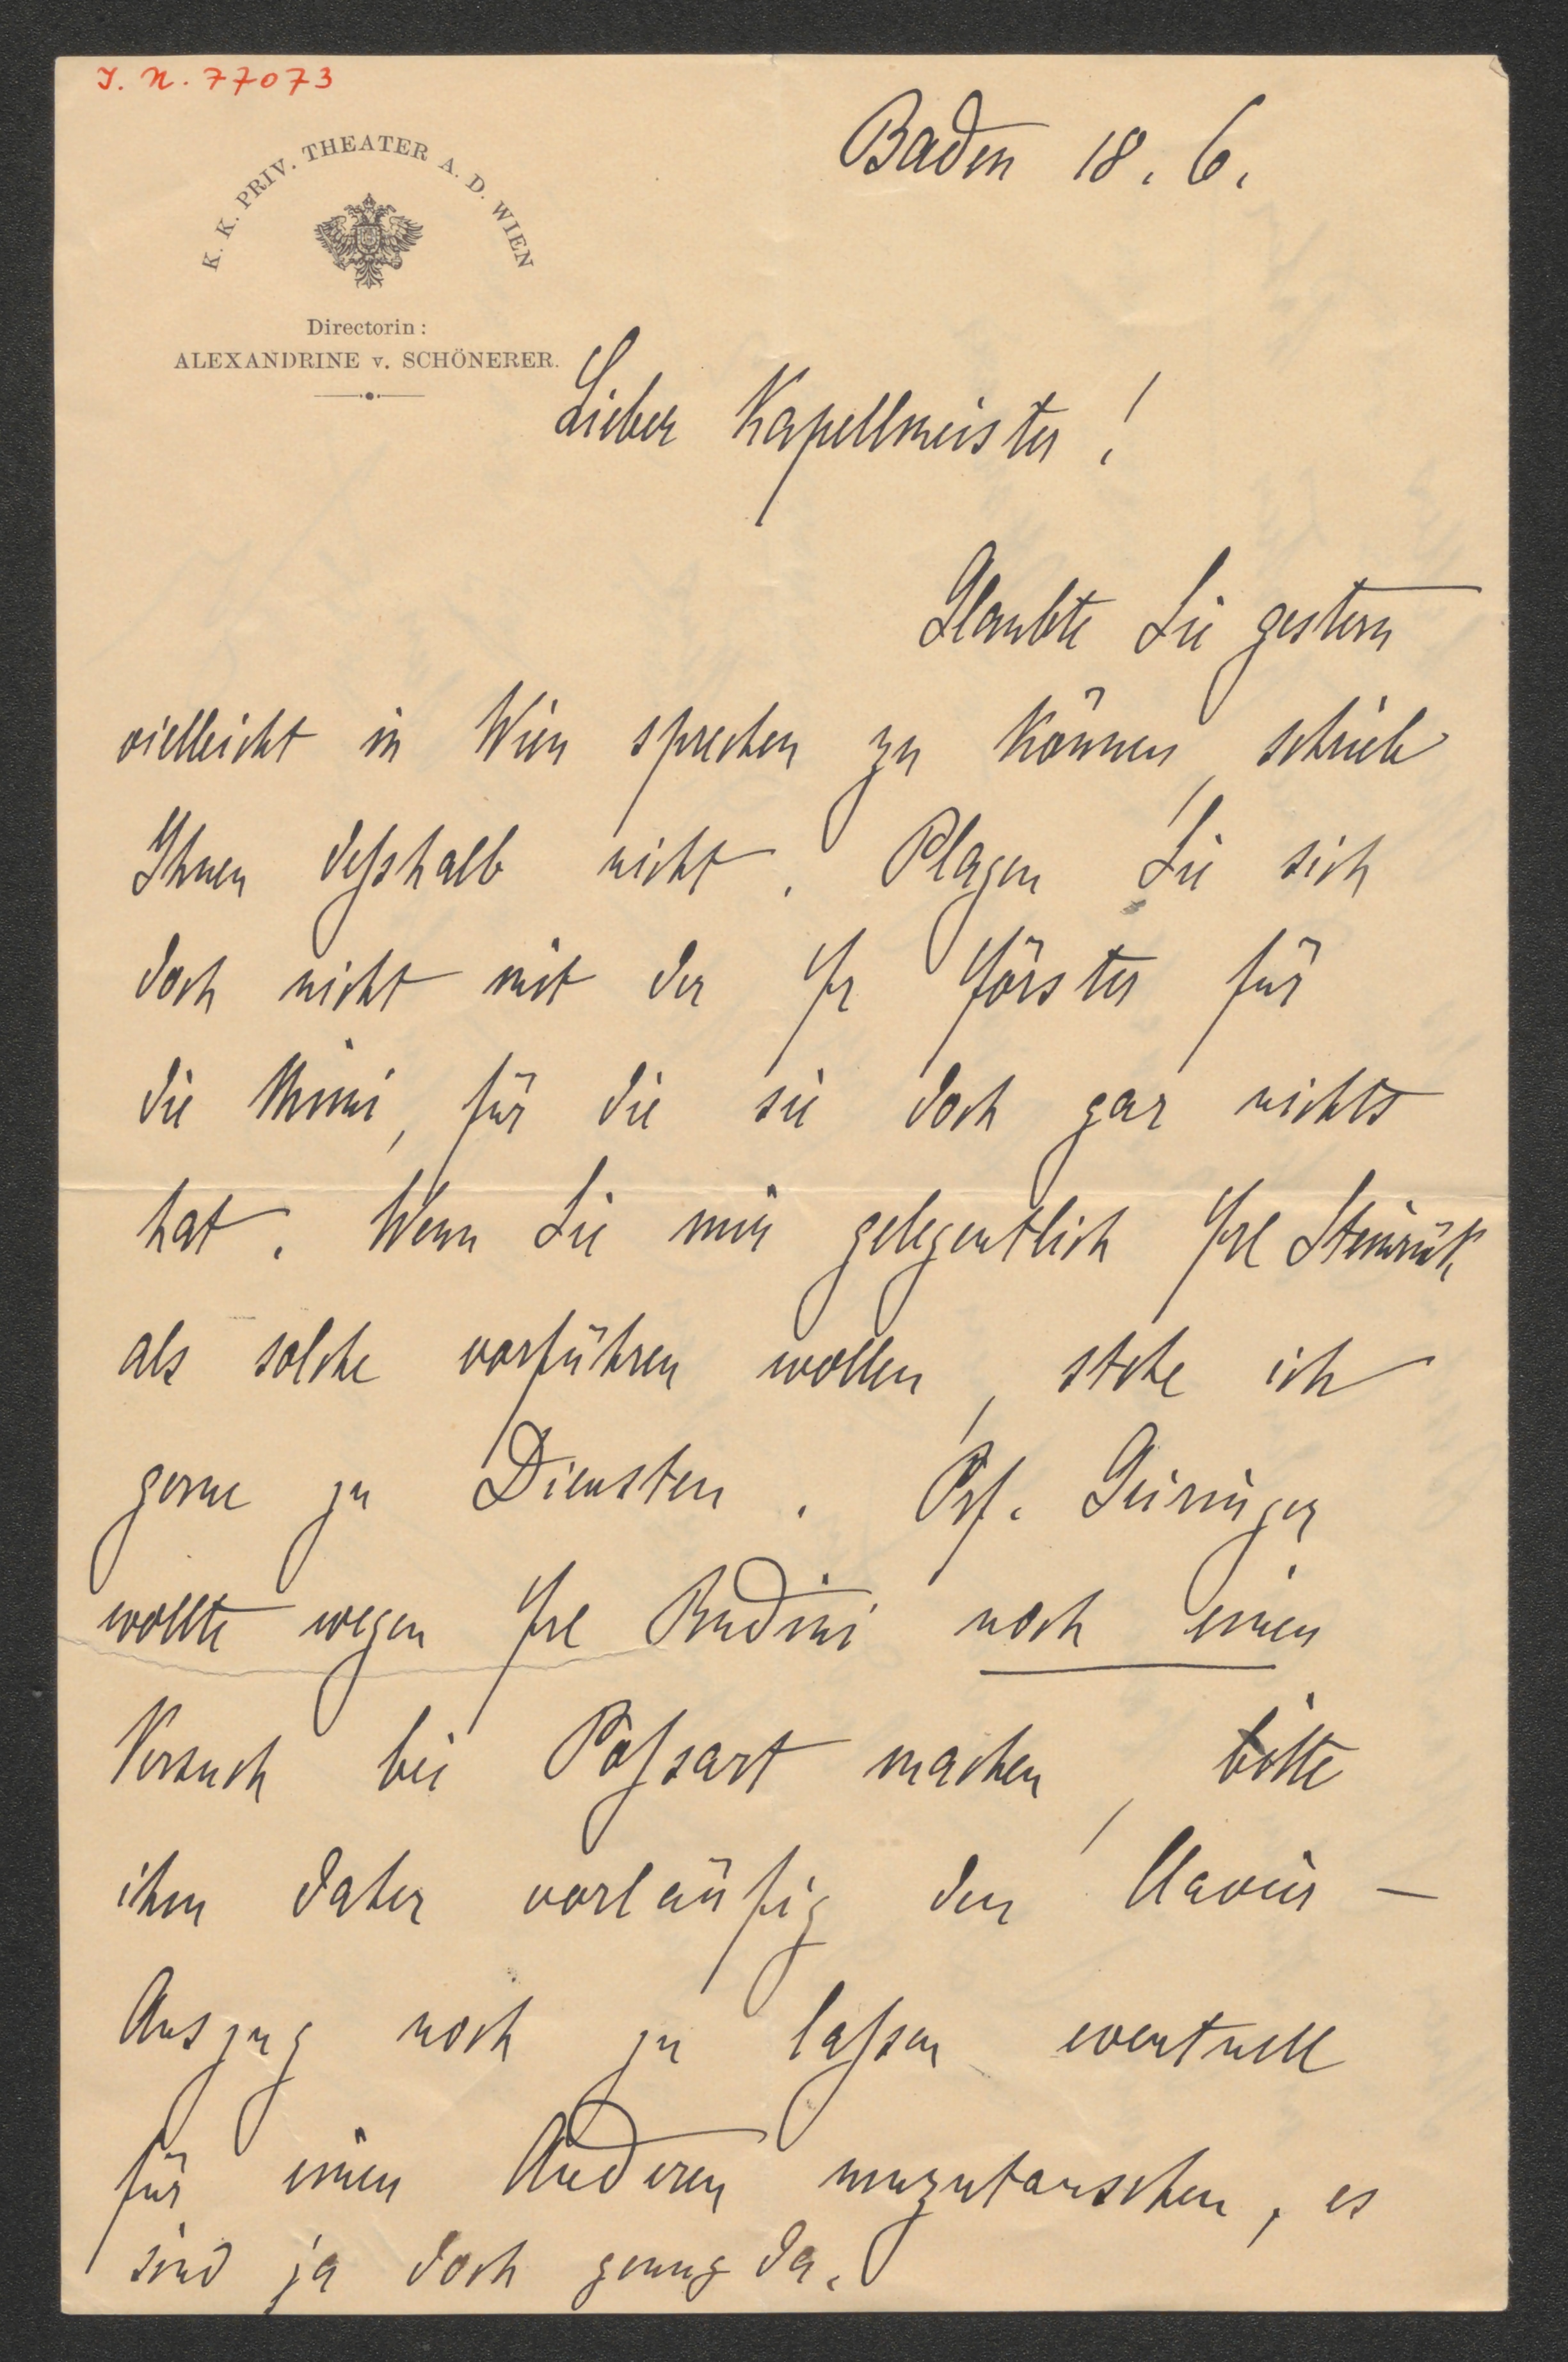 J. N. 77073
K. K. PRIV. THEATER A. D. WIEN
Directorin:
ALEXANDRINE v. SCHÖNERER.
Baden 18. 6.
Lieber Kapellmeister!
Glaubte Sie gestern
vielleicht in Wien sprechen zu können, schrieb
Ihnen deßhalb nicht. Plagen Sie sich
doch nicht mit der Fr Förster für
die Mimi, für die sie doch gar nichts
hat. Wenn Sie mir gelegentlich Frl
als solche vorführen wollen, stehe ich
gerne zu Diensten. Prf. Geiringer
wollte wegen Frl Rudini noch einen
Versuch bei Poßart machen, bitte
ihm daher vorläufig den Clavier-
Auszug noch zu laßen eventuell
für einen Anderen umzutauschen, es
sind ja doch genug da.